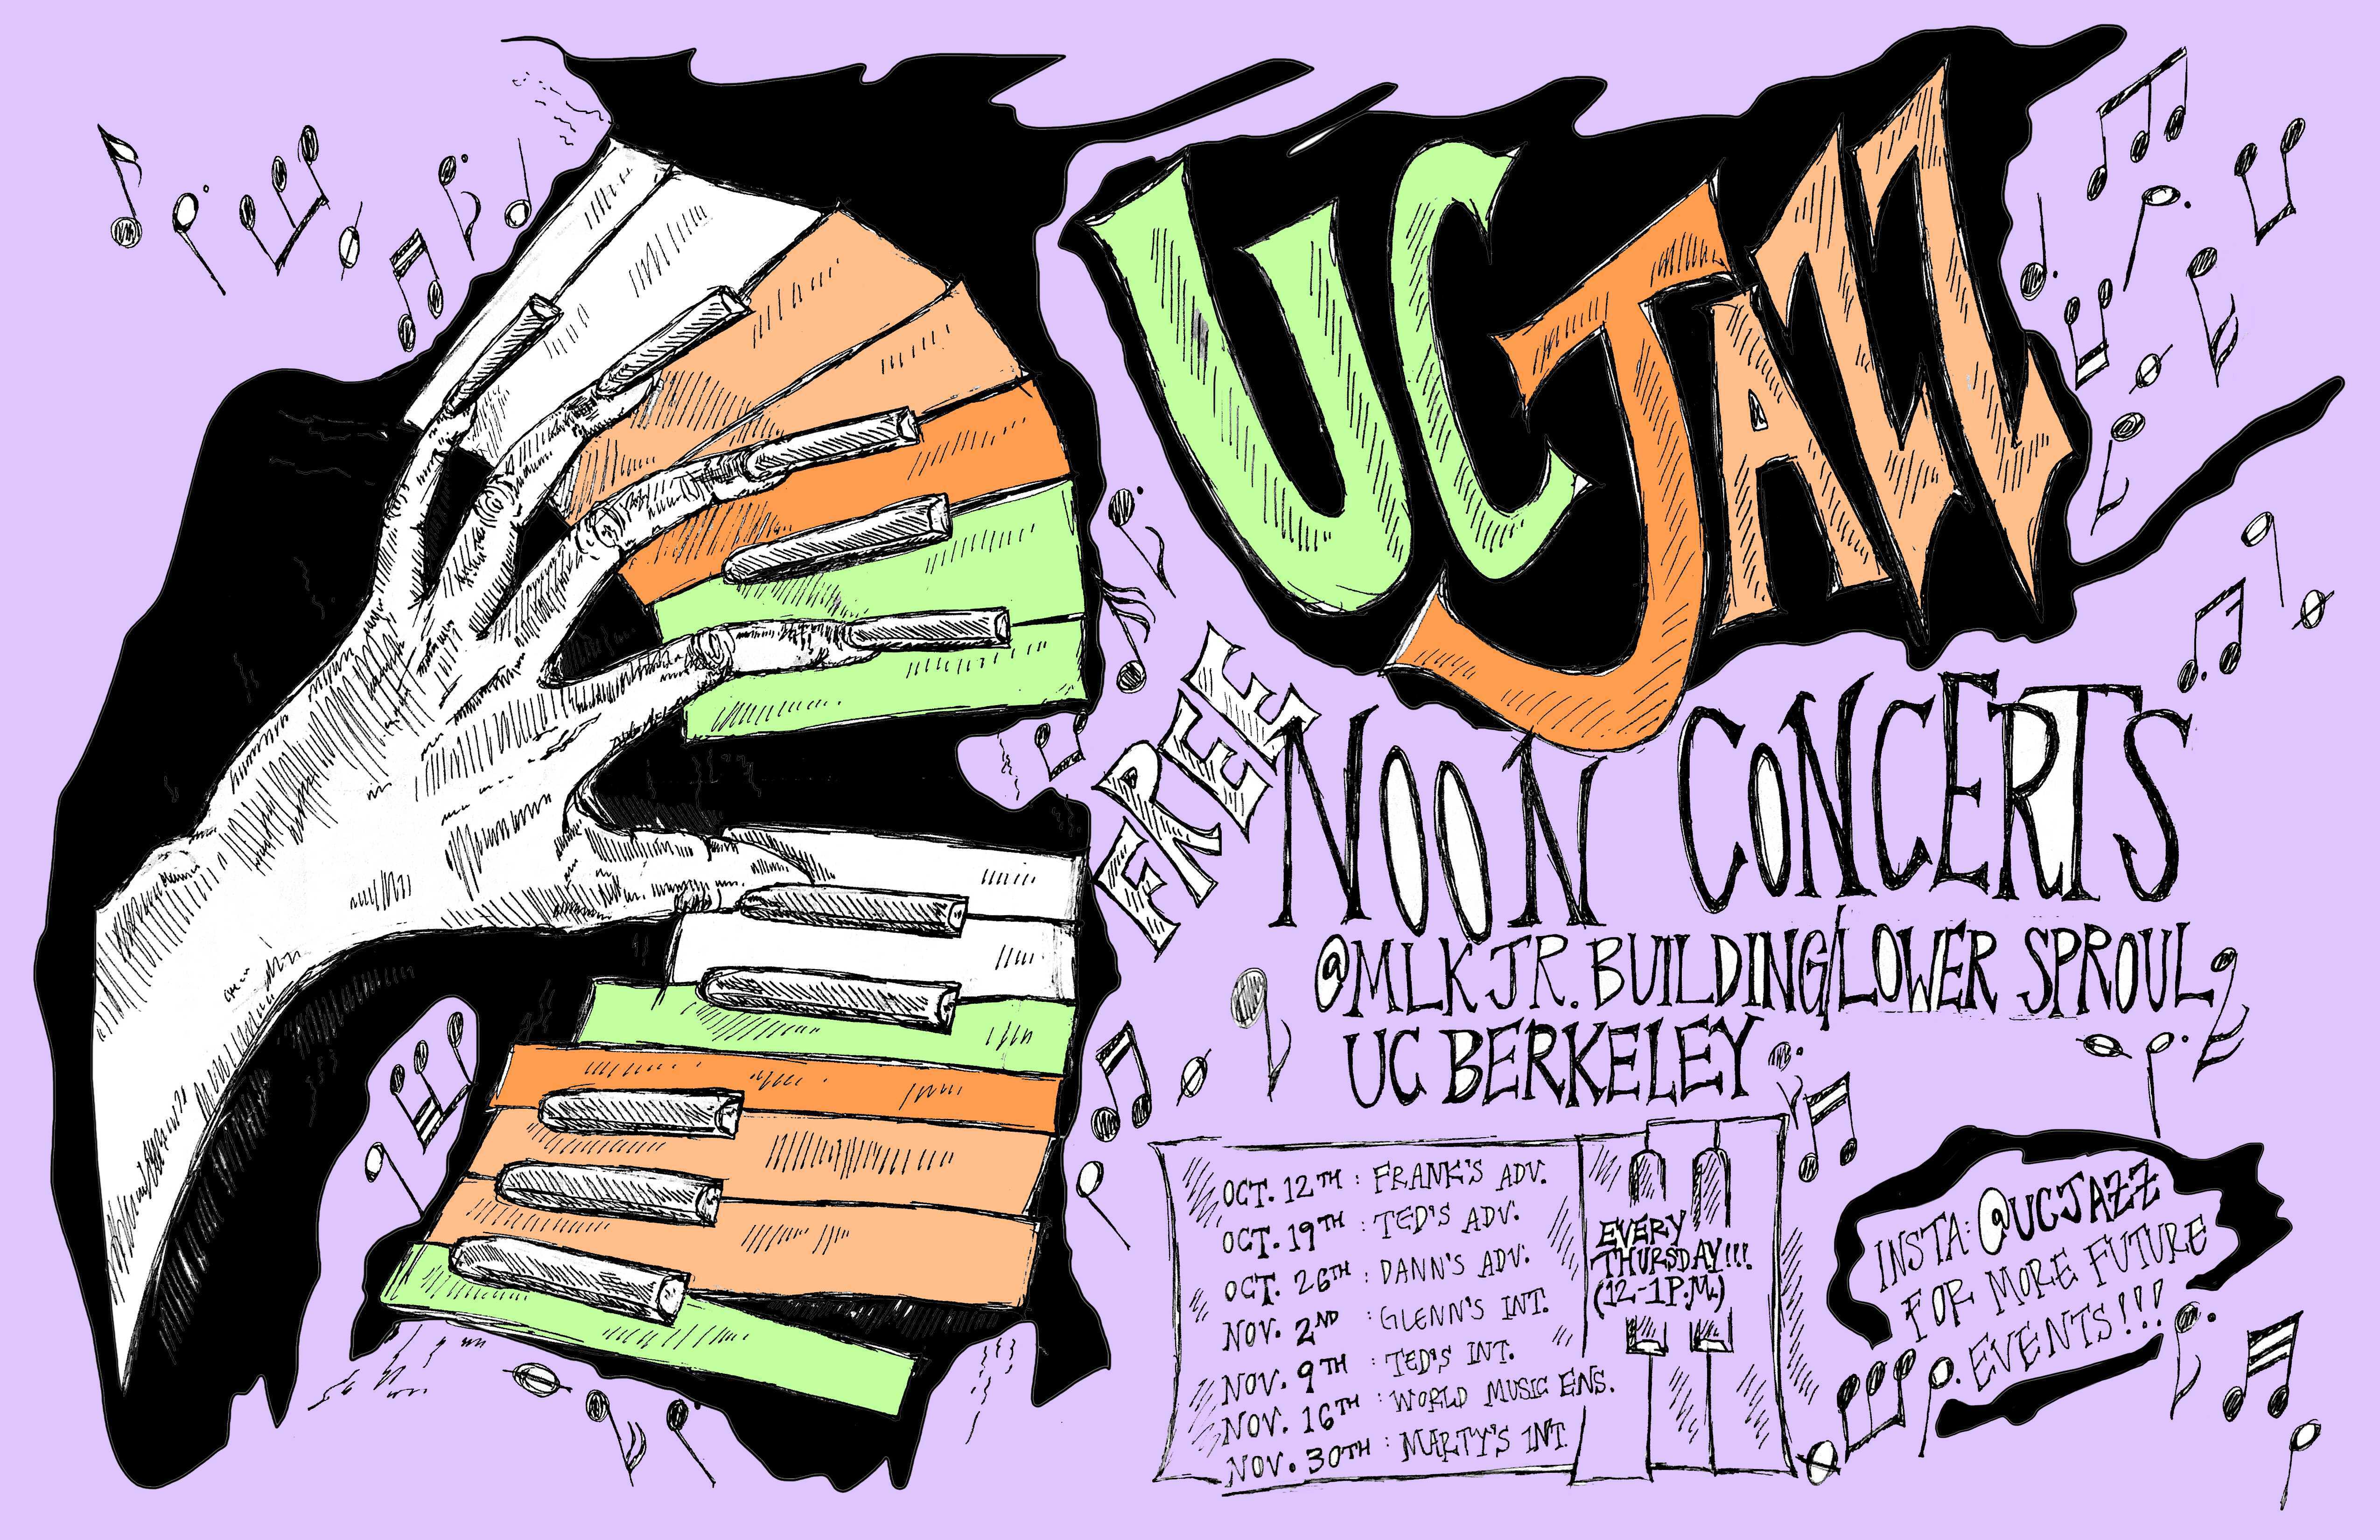 UC JAZZ
FREE
NOON CONCERTS
@MLK JR. BUILDING/LOWER SPROUL
UC BERKELEY
OCT. 12TH : FRANK'S ADV.
OCT. 19TH : TED'S ADV.
OCT. 26TH : DANN'S ADV.
NOV. 2ND : GLENN'S INT.
NOV. 9TH : TED'S INT.
NOV. 16TH : WORLD MUSIC ENS.
NOV. 30TH : MARTY'S INT.
EVERY
THURSDAY!!!
(12-1P.M.)
INSTA: @UCJAZZ
FOR MORE FUTURE
EVENTS!!!